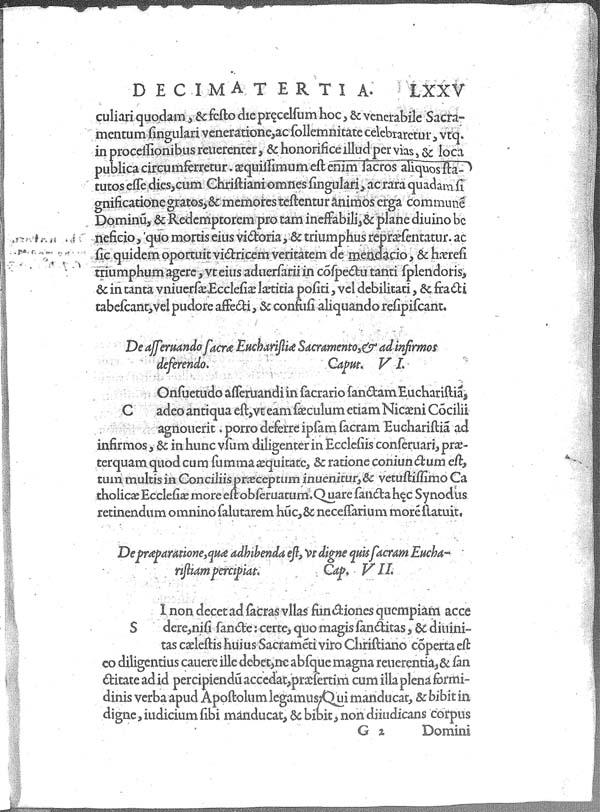 DECIMATERTIA. LXXV
culiari quodam, & festo die pręcelsum hoc, & venerabile Sacra-
mentum singulari veneratione, ac sollemnitate celebraretur, vtq.
in processionibus reuerenter, & honorifice illud per vias, & loca
publica circumferretur. æquissimum est enim sacros aliquos sta-
tutos esse dies, cum Christiani omnes singulari, ac rara quadam si
gnificatione gratos, & memores testentur animos erga communẽ
Dominũ, & Redemptorem pro tam ineffabili, & plane diuino be
neficio, quo mortis eius victoria, & triumphus repræsentatur. ac
sic quidem oportuit victricem veritatem de mendacio, & hæresi
triumphum agere, vt eius aduersarii in cõspectu tanti splendoris,
& in tanta vniuersæ Ecclesiæ lætitia positi, vel debilitati, & fracti
tabescant, vel pudore affecti, & confusi aliquando resipiscant.
De asseruando sacræ Eucharistiæ Sacramento, & ad infirmos
deferendo. Caput. VI.
Onsuetudo asseruandi in sacrario sanctam Eucharistiã,
C adeo antiqua est, vt eam sæculum etiam Nicæni Cõcilii
agnouerit. porro deferre ipsam sacram Eucharistiã ad
infirmos, & in hunc vsum diligenter in Ecclesiis conseruari, præ-
terquam quod cum summa æquitate, & ratione coniunctum est,
tum multis in Conciliis præceptum inuenitur, & vetustissimo Ca
tholicæ Ecclesiæ more est obseruatum. Quare sancta hęc Synodus
retinendum omnino salutarem hũc, & necessarium morẽ statuit.
De præparatione, quæ adhibenda est, vt digne quis sacram Eucha-
ristiam percipiat. Cap. VII.
I non decet ad sacras vllas functiones quempiam acce
S dere, nisi sancte: certe, quo magis sanctitas, & diuini-
tas cælestis huius Sacramẽti viro Christiano cõperta est
eo diligentius cauere ille debet, ne absque magna reuerentia, & san
ctitate ad id percipiendũ accedat, præsertim cum illa plena formi-
dinis verba apud Apostolum legamus, Qui manducat, & bibit in
digne, iudicium sibi manducat, & bibit, non diiudicans corpus
G 2 Domini